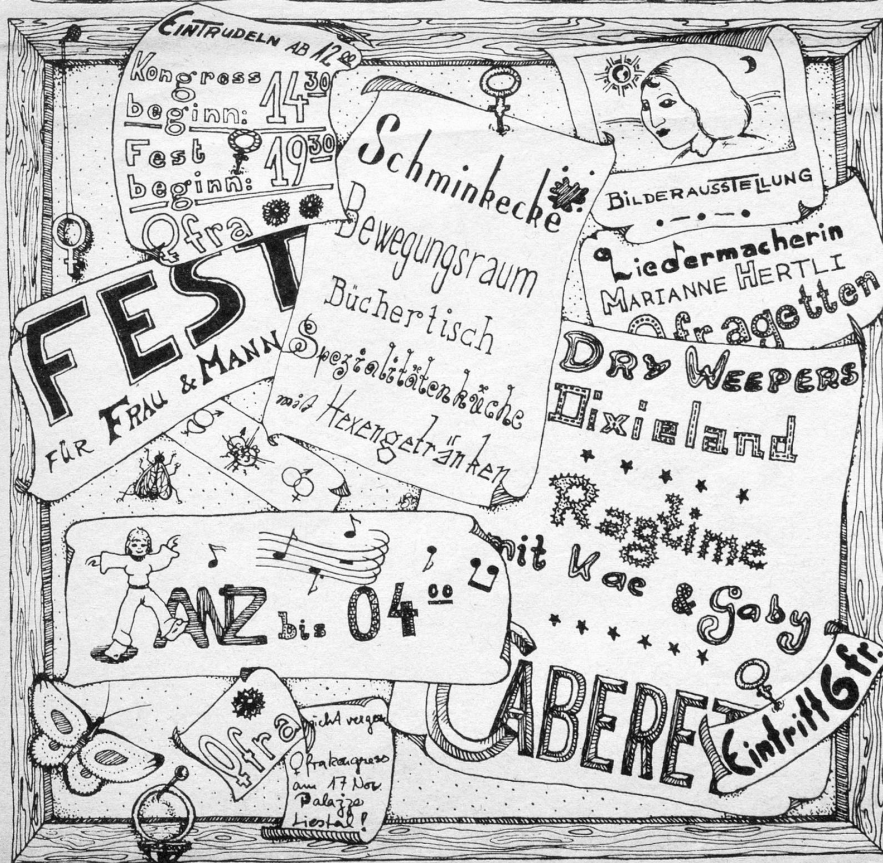 EINTRUDELN AB 12 00
Kongress
beginn: 14 30
Fest
beginn: 19 30
Ofra
FEST
FÜR FRAU & MANN
Schminkecke
Bewegungsraum
Büchertisch
Spezialitätenküche
mit Hexengetränken
BILDERAUSSTELLUNG
Liedermacherin
MARIANNE HERTLI
Ofragetten
DRY WEEPERS
Dixieland
Ragtime
mit Kae & Gaby
CABERET
Eintritt 6 fr.
TANZ bis 04 00
Ofra
nicht verges
Ofrakongress
am 17 Nov.
Palazzo
Liestal!